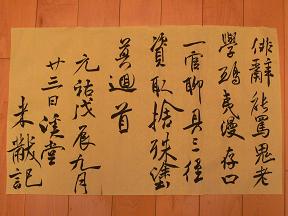 俳辭能罵鬼老
學鴟夷漫存口
一官聊具三徑
資取捨殊塗
莫迴首
元祐戊辰九月
廿三日溪堂
米黻記